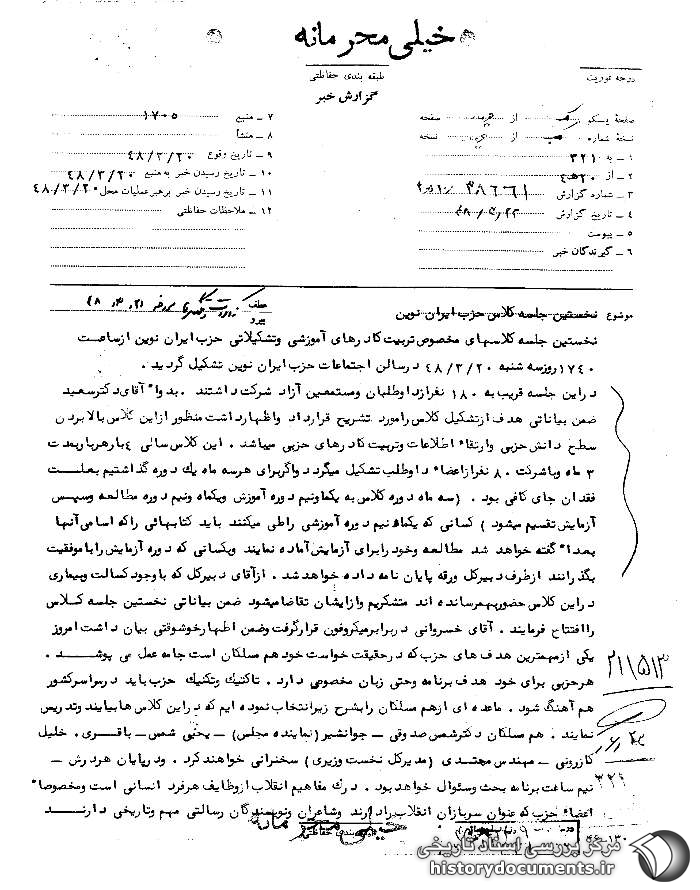 خیلی محرمانه
طبقه بندی حفاظتی
گزارش خبر
درجه فوریت
صفحه یک از صفحه
نسخه شماره از نسخه
۱ – به ۳۲۱
۲ – از ۲۰ ه ۴
۳ – شماره گزارش ۳۸۶۶۱
۴ – تاریخ گزارش ۴۸/۳/۲۲
۵ – پیوست
۶ – گیرندگان خبر
۷ – منبع ۱۷۰۵
۸ – منشأ
۹ – تاریخ وقوع ۴۸/۳/۲۰
۱۰ – تاریخ رسیدن خبر به منبع ۴۸/۳/۲۰
۱۱ – تاریخ رسیدن خبر برهبر عملیات محل ۴۸/۳/۲۰
۱۲ – ملاحظات حفاظتی
موضوع نخستین جلسه کلاس حزب ایران نوین
عطف
پیرو
نخستین جلسه کلاسهای مخصوص تربیت کادرهای آموزشی وتشکیلاتی حزب ایران نوین ازساعت
۱۷۴۰ روزسه شنبه ۴۸/۳/۲۰ درسالن اجتماعات حزب ایران نوین تشکیل گردید .
دراین جلسه قریب به ۱۸۰ نفرازداوطلبان ومستمعین آزاد شرکت داشتند . بدوا" آقای دکترسعید
ضمن بیاناتی هدف ازتشکیل کلاس رامورد تشریح قرارداد واظهارداشت منظور ازاین کلاس بالا بردن
سطح دانش حزبی وارتقاء اطلاعات وتربیت کادرهای حزبی میباشد . این کلاس سالی ۴ بارهربار بمدت
۳ ماه وباشرکت ۸۰ نفرازاعضاء داوطلب تشکیل میگردد واگربرای هرسه ماه یك دوره گذاشتیم بعلت
فقدان جای کافی بود . (سه ماه دوره کلاس به یکماونیم دوره آموزش ویکماه ونیم دوره مطالعه وسپس
آزمایش تقسیم میشود ) کسانی که یکماه نیم دوره آموزشی راطی میکنند باید کتابهائی راکه اسامی آنها
بعدا" گفته خواهد شد مطالعه وخود رابرای آزمایش آماده نمایند وبکسانی که دوره آزمایش راباموفقیت
بگذرانند ازطرف دبیرکل ورقه پایان نامه داده خواهدشد . ازآقای دبیرکل که باوجود کسالت وبیماری
دراین کلاس حضوربهمرسانده اند متشکریم وازایشان تقاضامیشود ضمن بیاناتی نخستین جلسه کلاس
راافتتاح فرمایند . آقای خسروانی دربرابرمیکروفون قرارگرفت وضمن اظهارخوشوقتی بیان داشت امروز
یکی ازمهمترین هدف های حزب که درحقیقت خواست خود هم مسلکان است جامه عمل می پوشد .
هرحزبی برای خود هدف برنامه وحتی زبان مخصوصی دارد . تاکتیك وتکنیك حزب باید درسراسرکشور
هم آهنگ شود . ماعده ای ازهم مسلکان رابشرح زیرانتخاب نموده ایم که دراین کلاس هابیایند وتدریس
نمایند . هم مسلکان دکترشمس صدوقی – جوانشیر (نماینده مجلس) – یحیی شمس – باقری . خلیل
کازرونی – مهندس مجتهدی (مدیرکل نخست وزیری) سخنرانی خواهندکرد . ودرپایان هردرس –
نیم ساعت برنامه بحث وسئوال خواهد بود . درك مفاهیم انقلاب ازوظایف هرفرد انسانی است ومخصوصا"
اعضاء حزب که عنوان سربازان انقلاب رادارند وشاعران ونویسندگان رسالتی مهم وتاریخی دارند
۳۲۱
خیلی محرمانه
طبقه بندی حفاظتی
مرکز بررسی اسناد تاریخی
historydocuments.ir